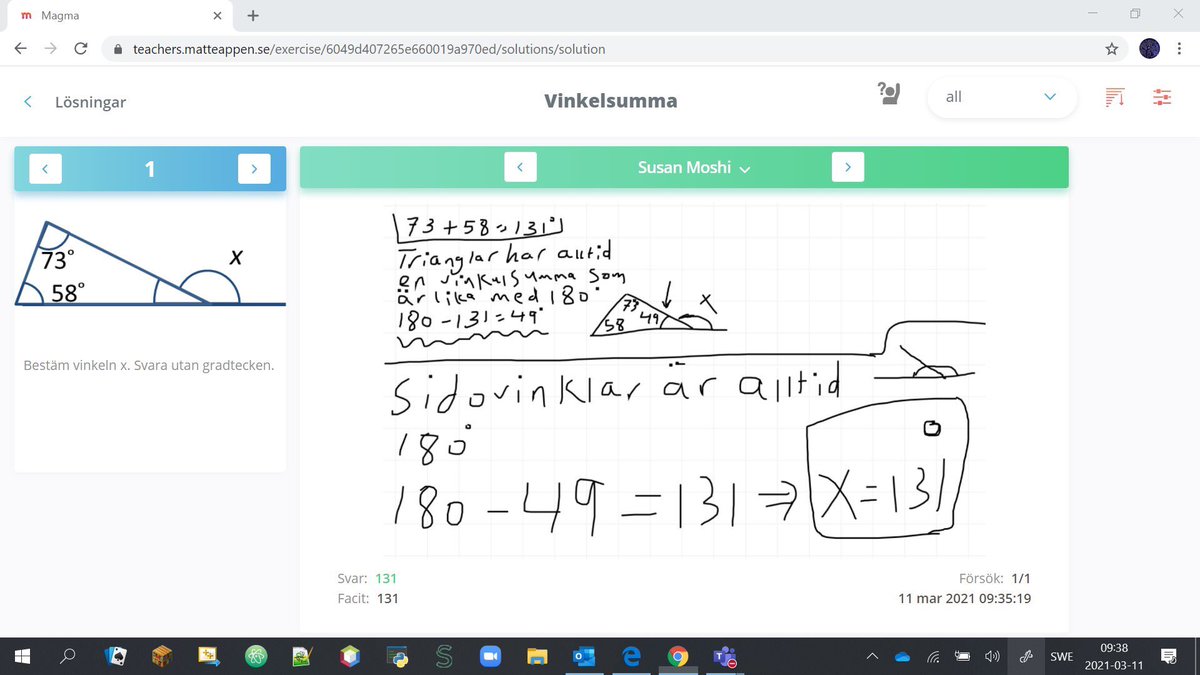 Magma
teachers.matteappen.se/exercise/6049d407265e660019a970ed/solutions/solution
Lösningar
Vinkelsumma
all
1
Susan Moshi
73°
58°
x
Bestäm vinkeln x. Svara utan gradtecken.
73+58=131°
Trianglar har alltid
en vinkelsumma som
är lika med 180°
180-131=49°
73
58
49
x
Sidovinklar är alltid
180°
180-49=131 ⇒ x=131°
Svar: 131
Försök: 1/1
Facit: 131
11 mar 2021 09:35:19
SWE
09:38
2021-03-11